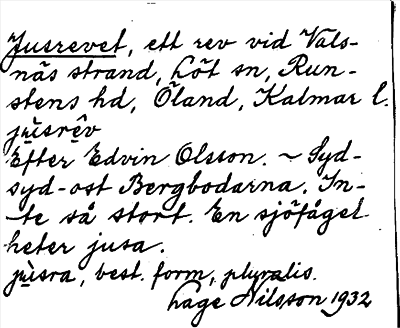 Jusrevet, ett rev vid Vals-
näs strand, Löt sn, Run-
stens hd, Öland, Kalmar l.
jùsrêv
Efter Edvin Olsson. ~ Syd-
syd-ost Bergbodarna. In-
te så stort. En sjöfågel
heter jusa.
jùsra, best. form, pluralis.
Lage Nilsson 1932